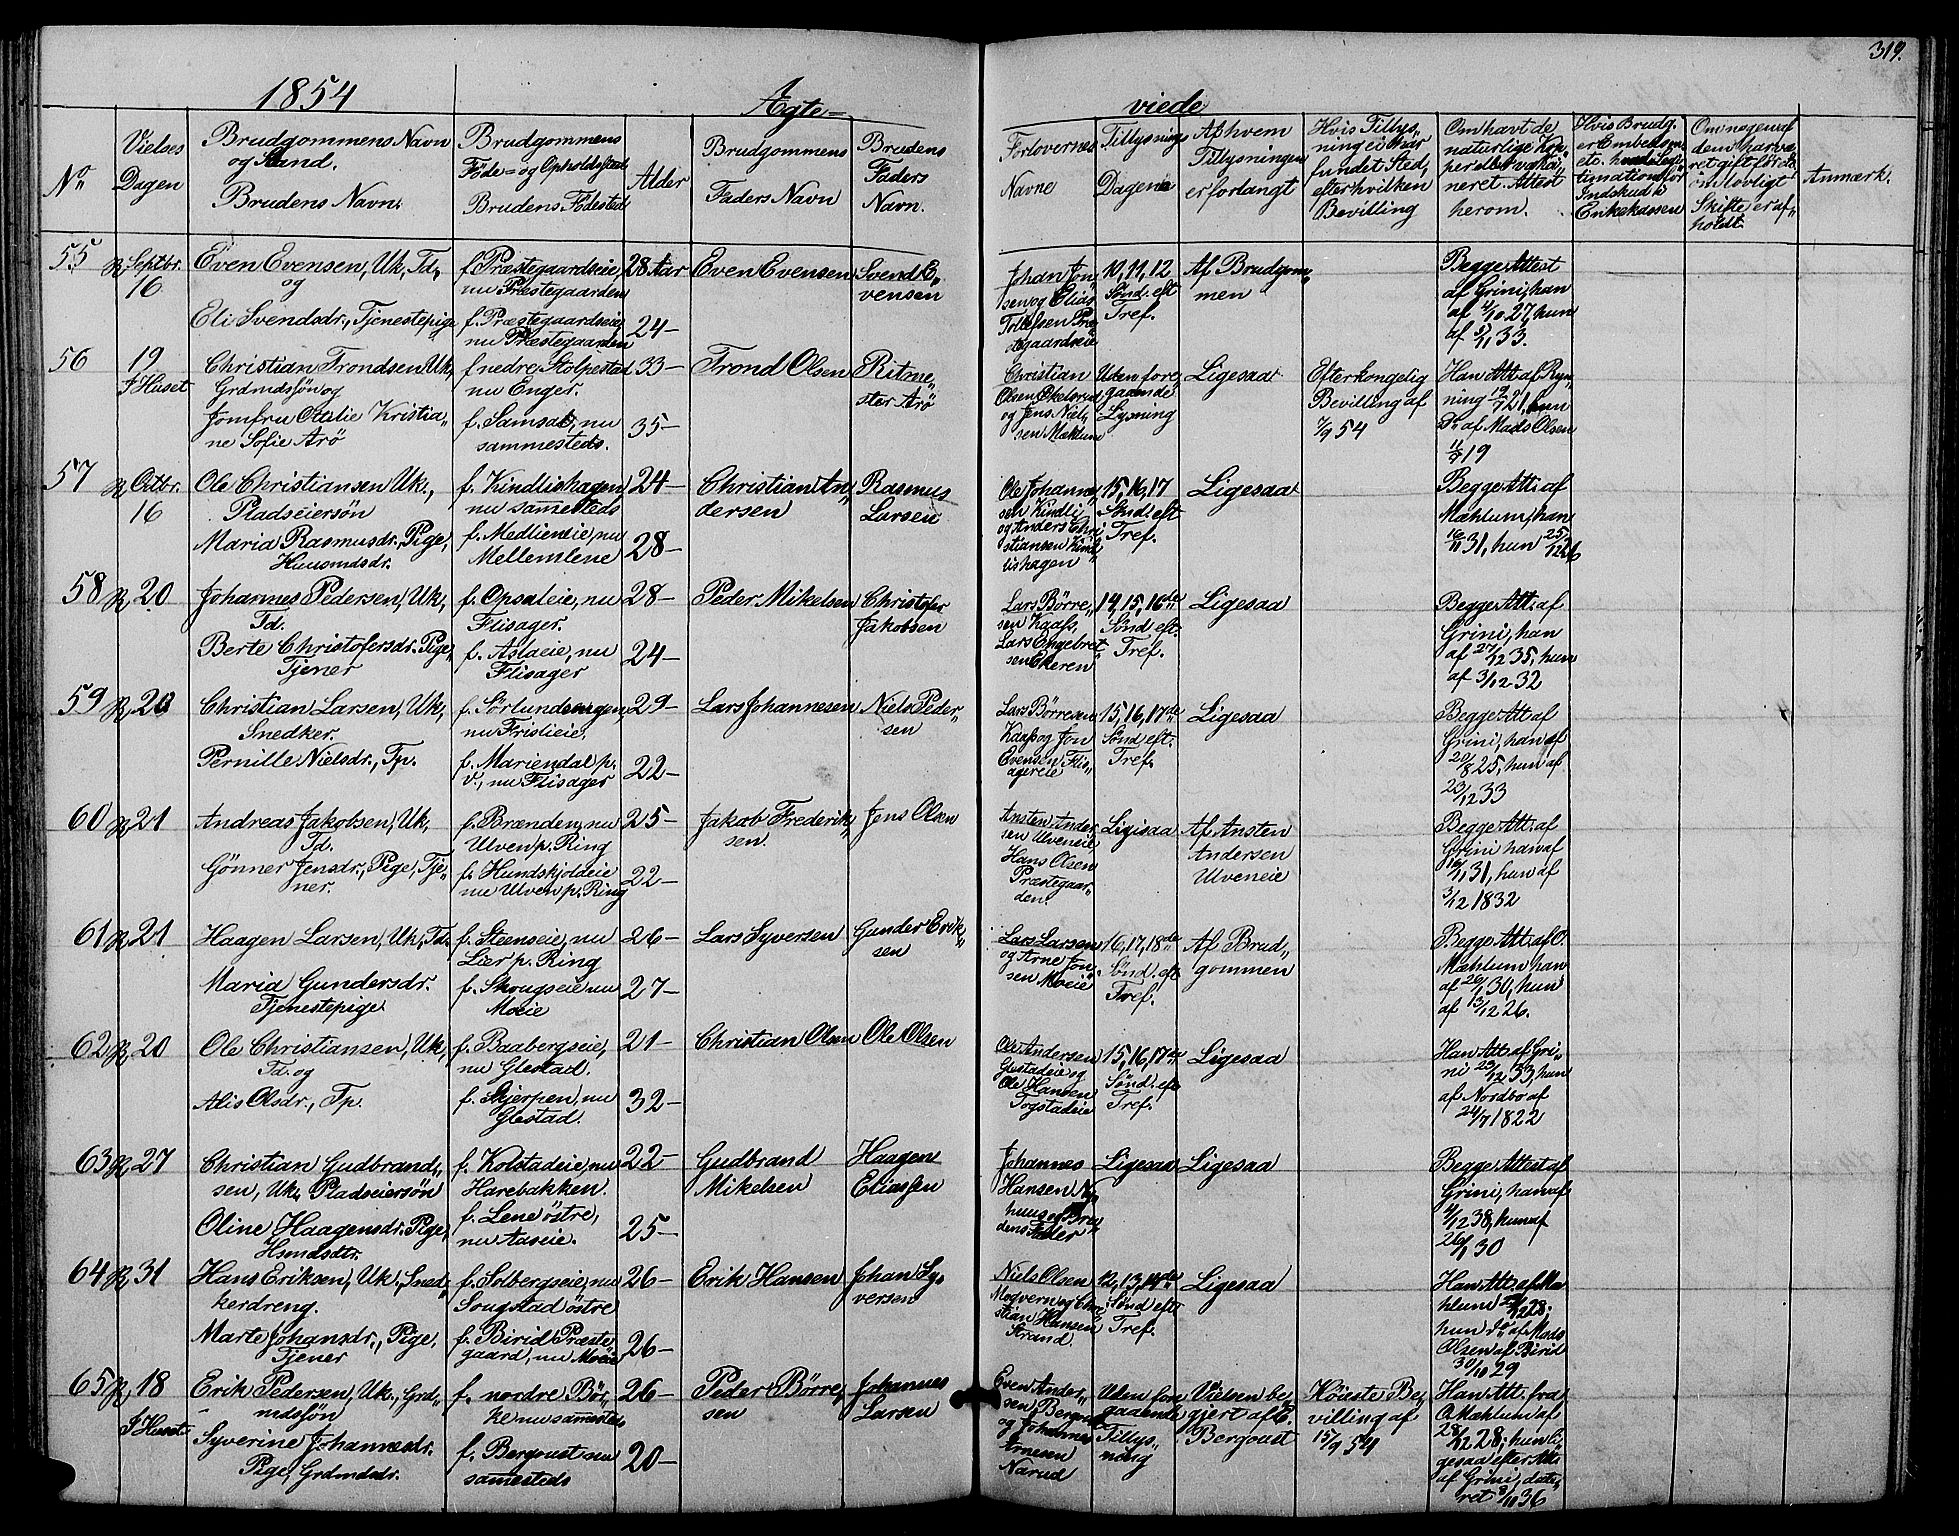 319.
1854
Ægte-
viede
No
Vielses
Dagen
Brudgommens Navn
og Stand.
Brudens Navn.
Brudgommens
Føde- og Opholdssted
Brudens Fødested
Alder
Brudgommens
Faders Navn
Brudens
Faders
Navn.
Forlovernes
Navne
Tillysnings
Dagene
Af hvem
Tillysningen
er forlangt
Hvis Tillys„
ning ei har
fundet Sted,
efter hvilken
Bevilling
Om havt de
naturlige Kop„
per eller vakci„
neret. Attest
herom.
Hvis Brudg.
er Embedsm.
etc.
Indskud i
Enkekassen
Om nogen af
dem har væ„
ret gift før
om lovligt
Skifte er af„
holdt.
Anmærk.
55
Septbr.
16
Even Evensen, Uk, Td,
og
Eli Svendsdr., Tjenestepige
f. Præstegaardseie,
nu Præstegaarden
f. Præstegaardseie
nu Præstegaarden
28 Aar
24-
Even Evensen
Svend E„
vensen
Johan Jon„
sen og Elias
Tollefsen Præ„
stegaardseie
10, 11, 12
Sønd. eft
Tref.
Af Brudgom„
men
Begge Attest
af Grini, han
af 4/10 27, hun
af 5/1 33.
56
19
I Huset
Christian Trondsen Uk,
Grdmdssøn og
Jomfru Ottilie Kristia„
ne Sofie Arö
f nedre Stolpestad
nu Enger.
f. Samsal, nu
sammesteds.
33-
35-
Trond Olsen
Ritme„
ster Arö
Christian
Olsen Økelsrud
og Jens Niel„
sen Mæhlum
Uden fore„
gaaende
Lysning
Ligesaa
Efter kongelig
Bevilling af
7/9 54
Han Att. af Ryn„
ning 19/7 21, hun
Do af Mads Olsen
11/9 19
57
Octbr.
16
Ole Christiansen Uk.,
Pladseiersøn
Maria Rasmusdr. Pige,
Huusmdsdr.
f. Kindlishagen
nu samesteds
f. Medlieneie, nu
Mellemlene
24-
28-
Christian An„
dersen
Rasmus
Larsen
Ole Johanne„
sen Kindli
og Anders Chri„
stiansen Kind„
lishagen
15, 16, 17
Sønd. eft
Tref.
Ligesaa
Begge Att. af
Mæhlum, han
16/11 31, hun 25/12 26
58
20
Johannes Pedersen, Uk,
Td.
Berte Christofersdr. Pige,
Tjener
f. Opsaleie, nu
Flisager.
f. Aslaeie, nu
Flisager
28-
24-
Peder Mikelsen
Christofer
Jakobsen
Lars Børre„
sen Kaass,
Lars Engebret
sen Ekeren
14, 15, 16de
Sønd eft.
Tref.
Ligesaa
Begge Att. af
Grini, han
af 27/12 35, hun
af 3/12 32
59
20
Christian Larsen, Uk,
Snedker.
Pernille Nielsdr., Tp.
f. Sørlundsengen,
nu Fristieie.
f. Mariendal p.
V., nu Flisager
29-
22-
Lars Johannesen
Niels Peder„
sen
Lars Børresen
Kaass og Jon
Evensen Flis„
agereie
15, 16, 17de
Sønd eft.
Tref.
Ligesaa
Begge Att af
Grini, han af
20/8 25, hun af
23/12 33
60
21
Andreas Jakobsen, Uk,
Td.
Gönner Jensdr., Pige, Tje„
ner.
f. Brænden, nu
Ulven p. Ring
f. Hundskjoldeie
nu Ulven p. Ring
25-
22-
Jakob Frederik„
sen.
Jens Olsen
Ansten Ander„
sen Ulveneie,
Hans Olsen
Præstegaar„
den.
Ligesaa
Af Ansten
Andersen
Ulveneie
Begge Att. af
Grini han af
16/1 31, hun af
3/12 1832
61
21
Haagen Larsen, Uk, Td.
Maria Gundersdr.
Tjenestepige
f. Steenseie, nu
Lier p. Ring
f. Skougseie nu
Moeie
26-
27-
Lars Syversen
Gunder Erik„
sen
Lars Larsen
og Arne Jon„
sen Moeie
16, 17, 18de
Sønd. eft
Tref.
Af Brud„
gommen
Begge Att. af O.
Mæhlum han
af 26/1 30, hun
af 13/12 26.
62
20
Ole Christiansen, Uk,
Td. og
Alis Olsdr., Tp.
f. Baabergseie,
nu Glestad.
f. Skjerpen, nu
Glestad.
21-
32-
Christian Olsen
Ole Olsen
Ole Andersen
Glestadeie og
Ole Hansen
Togstadeie
15, 16, 17de
Sønd. eft
Tref.
Ligesaa
Han Att. af Gri„
ni 23/12 33, hun
af Nordbo af
24/7 1822
63
27
Christian Gudbrand„
sen, Uk, Pladseiersøn
Oline Haagensdr. Pige,
Hsmdsdtr.
f. Kolstadeie, nu
Harebakken.
f. Lene østre,
nu Aaseie.
22-
25-
Gudbrand
Mikelsen
Haagen
Eliassen
Johannes
Hansen Ny„
huus og Bru„
dens Fader
Ligesaa
Ligesaa
Begge Attest af
Grini, han af
4/12 38, hun af
26/1 30
64
31
Hans Eriksen, Uk., Sned„
kerdreng.
Marte Johansdr., Pige,
Tjener
f. Solbergseie, nu
Sougstad østre
f. Birid Præste„
gaard, nu Moeie
26-
26-
Erik Hansen
Johan Sy„
versen
Niels Olsen
Mogvern og Chri„
stian Hansen
Strand.
12, 13, 14de
Sønd eft
Tref.
Ligesaa
Han Att. af Mæ„
hlum 28.
hun do af Mads
Olsen af Birid
30/10 29
65
18
I Huset
Erik Pedersen, Uk., Grd„
mdssøn
Syverine Johannesdr.
Pige, Grdmdsdr.
f. nordre Bör„
ke nu samesteds
f. Bergoust nu
samesteds
26-
20-
Peder Börre„
sen
Johannes
Larsen
Even Ander„
sen Bergoust
og Johannes
Arnesen
Narud
Uden for„
gaaende
Tillys„
ning
Vielsen be„
gjert af E.
Bergoust
Høieste Be„
villing af
15/9 54
Han Att. fra
O. Mæhlum af
28/12 28; hun li„
gesaa efter Att.
af Grini, date„
ret 8/10 36